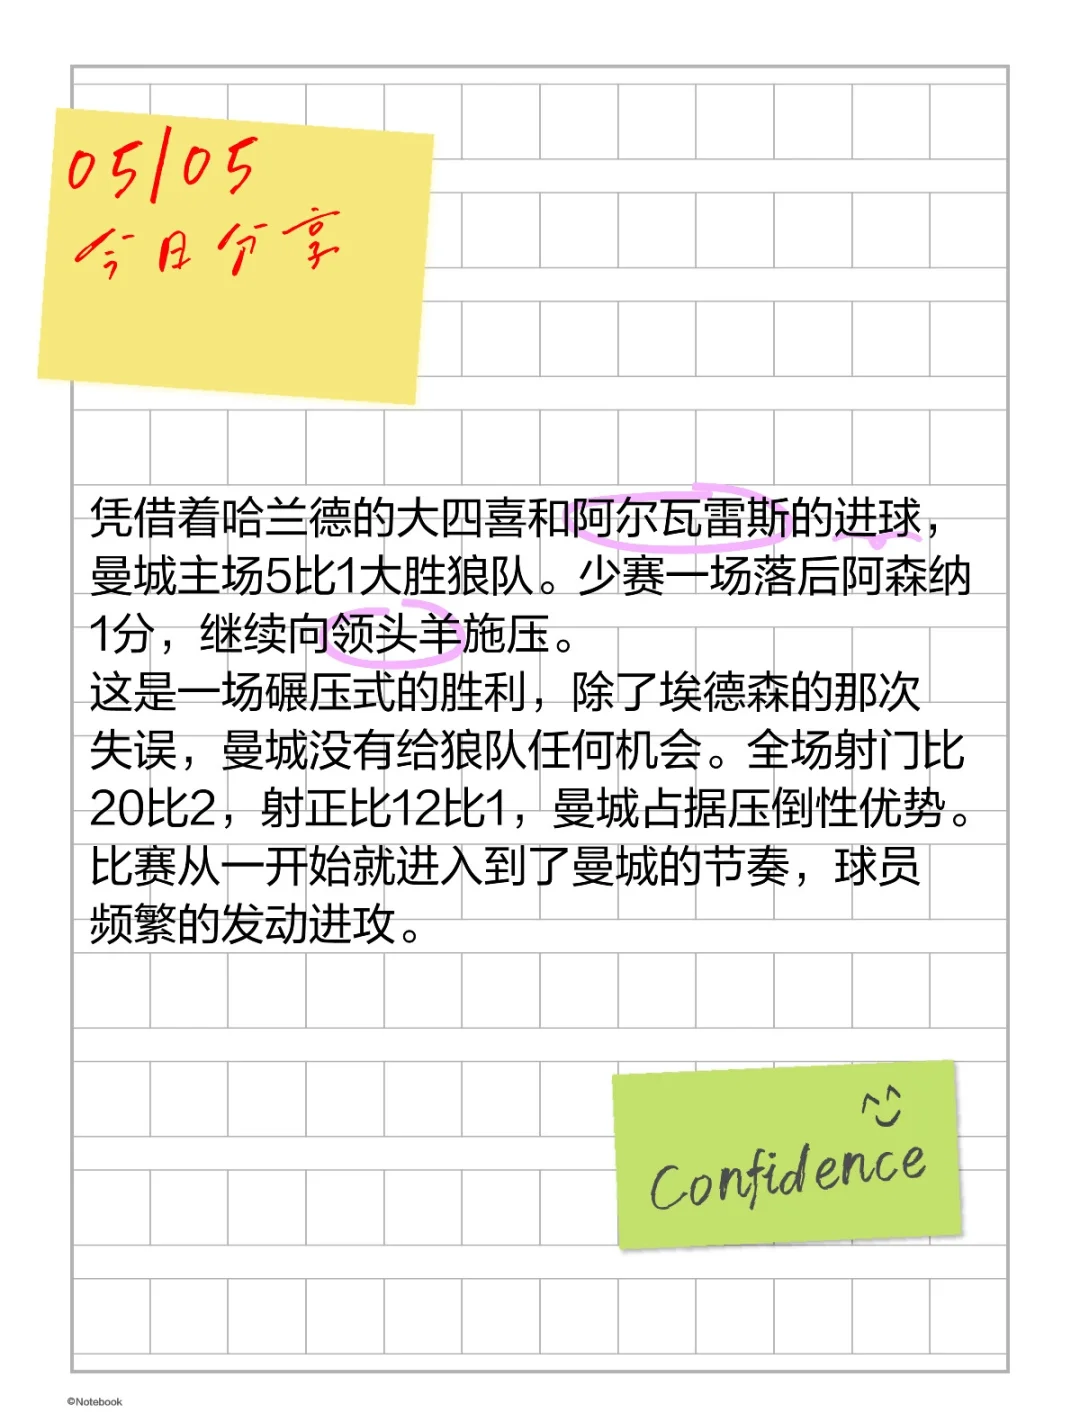 05/05
今日分享
凭借着哈兰德的大四喜和阿尔瓦雷斯的进球，
曼城主场5比1大胜狼队。少赛一场落后阿森纳
1分，继续向领头羊施压。
这是一场碾压式的胜利，除了埃德森的那次
失误，曼城没有给狼队任何机会。全场射门比
20比2，射正比12比1，曼城占据压倒性优势。
比赛从一开始就进入到了曼城的节奏，球员
频繁的发动进攻。
Confidence
©Notebook